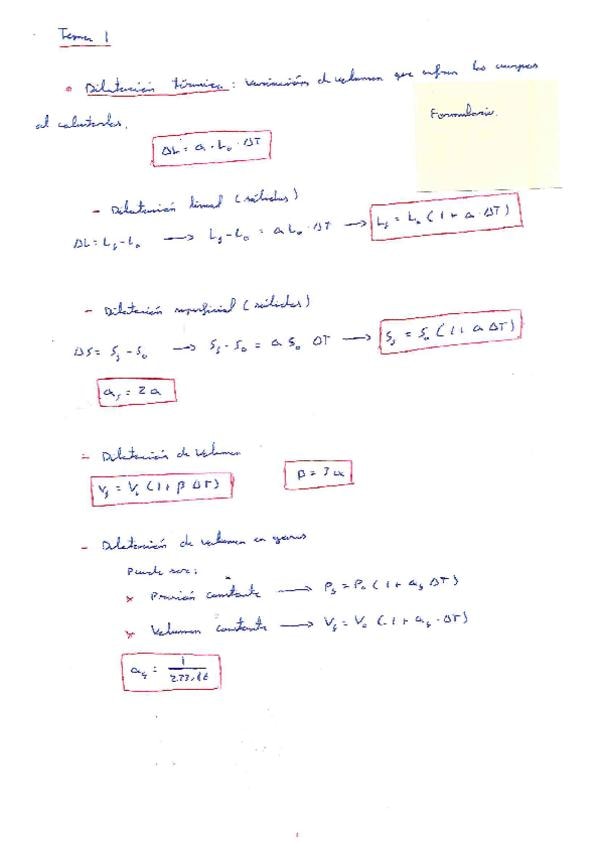 Tema 1
• Dilatación térmica: Variación de volumen que sufren los cuerpos
al calentarlos.
Formulario.
ΔL = α · L₀ · ΔT
- Dilatación lineal (sólidos)
ΔL = L_f - L₀ → L_f - L₀ = α L₀ · ΔT → L_f = L₀ (1 + α · ΔT)
- Dilatación superficial (sólidos)
ΔS = S_f - S₀ → S_f - S₀ = α S₀ ΔT → S_f = S₀ (1 + α ΔT)
α_s = 2α
- Dilatación de volumen
V_f = V₀ (1 + β ΔT) β = 3α
- Dilatación de volumen en gases
Puede ser:
× Presión constante → P_f = P₀ (1 + α_g ΔT)
× Volumen constante → V_f = V₀ (1 + α_g · ΔT)
α_g = 1 / 273,16